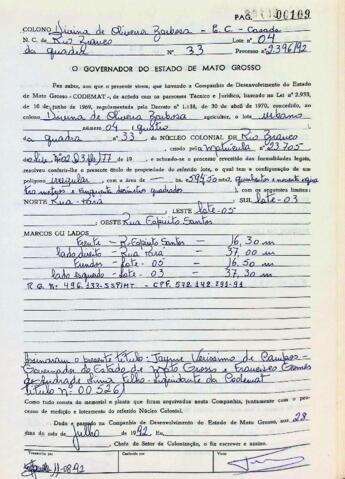 PAG. 00109
COLONO Divina de Oliveira Barbosa - E. C. - Casada
N. C. de Rio Branco Lote nº 04
da quadra Nº 33 Processo nº 2396/92
O GOVERNADOR DO ESTADO DE MATO GROSSO
Faz saber, aos que o presente virem, que havendo a Companhia de Desenvolvimento do Estado
de Mato Grosso - CODEMAT -, de acordo com os pareceres Técnico e Jurídico, baseado na Lei nº 2.933,
de 16 de junho de 1969, regulamentada pelo Decreto nº 1.138, de 30 de abril de 1970, concedido, ao
colono Divina de Oliveira Barbosa agricultor, o lote urbano
número 04 (quatro
a quadra nº 33 DO NÚCLEO COLONIAL DE Rio Branco
, criado pela matrícula nº 23.705
do liv. nº 02 fls/77 de 19 , e achando-se o processo revestido das formalidades legais,
resolveu conferir-lhe o presente título de propriedade do referido lote, o qual tem a configuração de um
polígono irregular com a área de 594,50 m² quinhentos e noventa e quatro
metros e cinquenta decímetros quadrados com os seguintes limites:
NORTE Rua - Pará SUL lote - 03
LESTE lote - 05
, OESTE Rua Espírito Santos
MARCOS OU LADOS
Frente - R. Espírito Santos - 16,30 m
lado direito - Rua Pará - 37,00 m
Fundos - lote - 05 - 16,50 m
lado esquerdo - lote - 03 - 37,30 m
R. G. Nº 496.133-SSP/MT - CPF. 572.142.291-91
Assinaram o presente título: Jayme Veríssimo de Campos -
Governador do Estado de Mato Grosso e Francisco Gomes
de Andrade Lima Filho - Liquidante da Codemat
Título nº 00.526)
Como tudo consta do memorial e planta que foram arquivados nesta Companhia, juntamente com o pro-
cesso de medição e loteamento do referido Núcleo Colonial.
Dado e passado na Companhia de Desenvolvimento do Estado de Mato Grosso, aos 28
dias do mês de Julho de 1992. Eu,
Chefe do Setor de Colonização, o fiz escrever e assino.
Transcrito por Conferido por VISTO
11-08-92